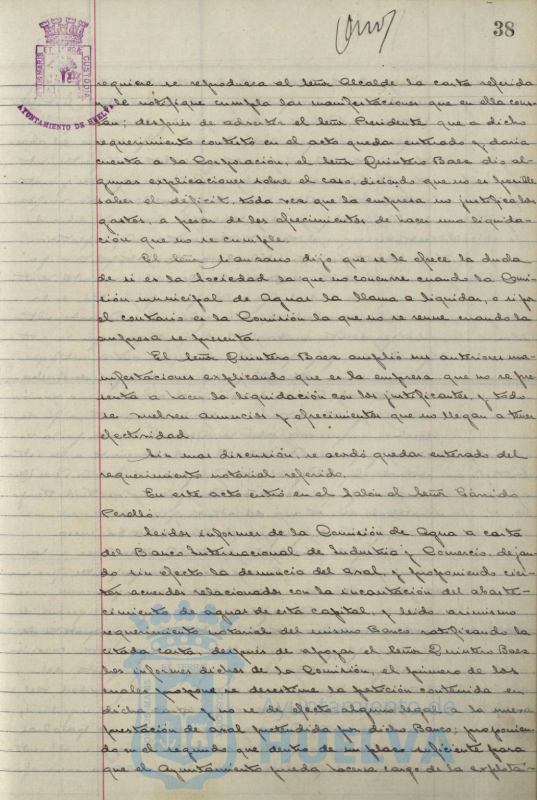 38
PORTUS MARIS ET TERRAE CUSTODIA
AYUNTAMIENTO DE HUELVA
requiere se reproduzca al Señor Alcalde la carta referida
y le notifique cumpla las manifestaciones que en ella cons-
tan; después de advertir el Señor Presidente que a dicho
requerimiento contestó en el acto quedar enterado y daria
cuenta a la Corporación, el Señor Quintero Baez dio al-
gunas explicaciones sobre el caso, diciendo que no es posible
saber el déficit, toda vez que la empresa no justifica los
gastos, a pesar de los ofrecimientos de hacer una liquida-
ción que no se cumple.
El Señor Manzano dijo que se le ofrece la duda
de si es la Sociedad la que no concurre cuando la Comi-
sión municipal de Aguas la llama a liquidar, o si por
el contrario es la Comisión la que no se reune cuando la
empresa se presenta.
El Señor Quintero Baez amplió sus anteriores ma-
nifestaciones explicando que es la empresa que no se pre-
senta a hacer la liquidación con los justificantes, y todo
se vuelven anuncios y ofrecimientos que no llegan a tener
efectividad.
Sin mas discusión, se acordó quedar enterado del
requerimiento notarial referido.
En este acto entró en el Salón el Señor Garrido
Perelló.
Leidos informes de la Comisión de Agua a carta
del Banco Internacional de Industria y Comercio, dejan-
do sin efecto la denuncia del aval, y proponiendo cier-
tos acuerdos relacionados con la incautación del abaste-
cimiento de aguas de esta capital, y leido asimismo
requerimiento notarial del mismo Banco ratificando la
citada carta, después de apoyar el Señor Quintero Baez
los informes dichos de la Comisión, el primero de los
cuales propone se desestime la petición contenida en
dicha carta y no se dé efecto alguno legal a la nueva
prestación de aval pretendida por dicho Banco; proponien-
do en el segundo que dentro de un plazo suficiente para
que el Ayuntamiento pueda hacerse cargo de la explota-
Ayuntamiento de
HUELVA